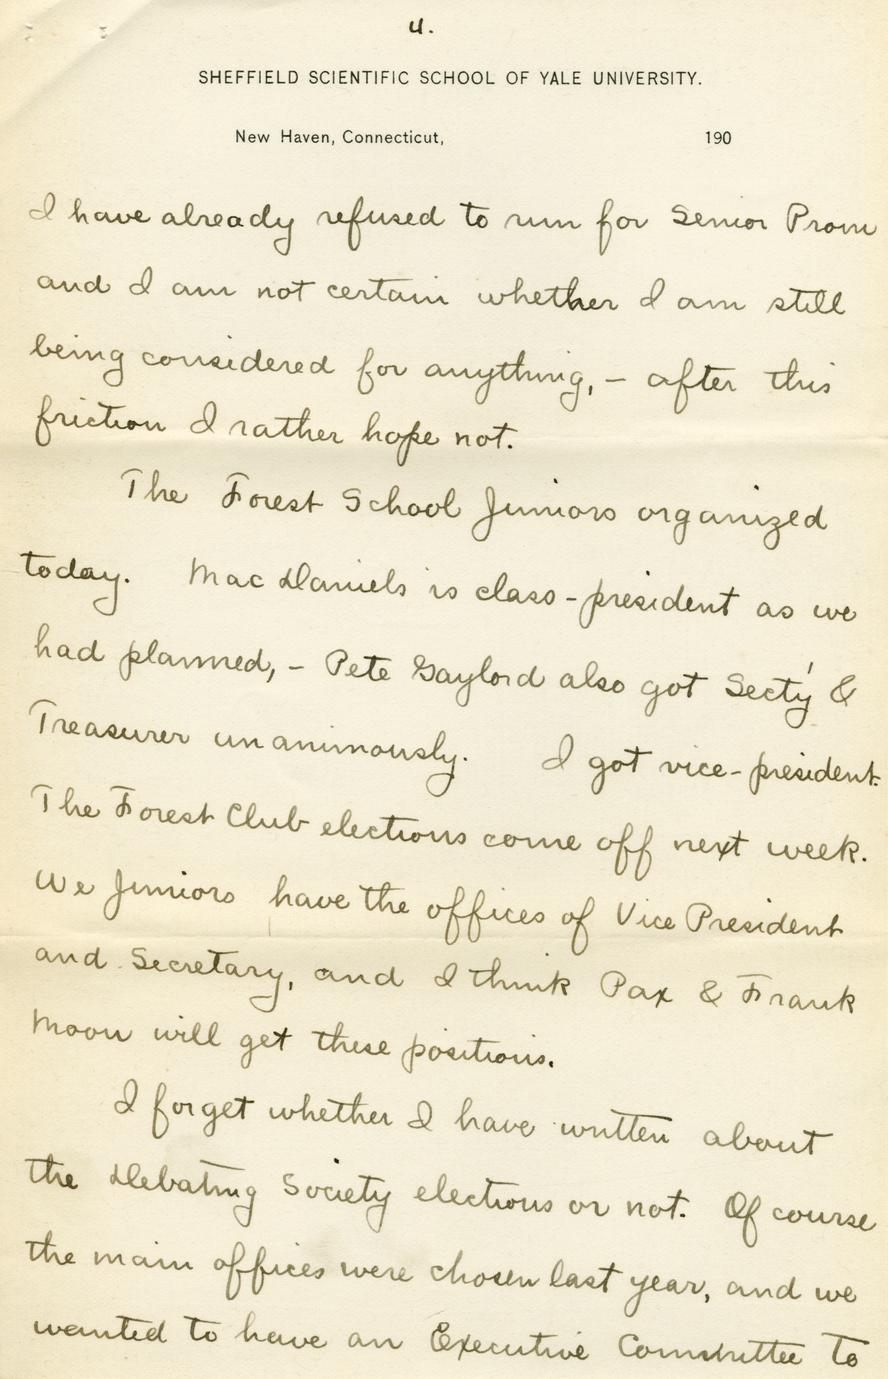 4.
SHEFFIELD SCIENTIFIC SCHOOL OF YALE UNIVERSITY.
New Haven, Connecticut, 190
I have already refused to run for Senior Prom
and I am not certain whether I am still
being considered for anything, – after this
friction I rather hope not.
The Forest School Juniors organized
today. MacDaniels is class-president as we
had planned, – Pete Gaylord also got Sect'y &
Treasurer unanimously. I got vice-president.
The Forest Club elections come off next week.
We Juniors have the offices of Vice President
and Secretary, and I think Pax & Frank
Moon will get these positions.
I forget whether I have written about
the Debating Society elections or not. Of course
the main offices were chosen last year, and we
wanted to have an Executive Committee to